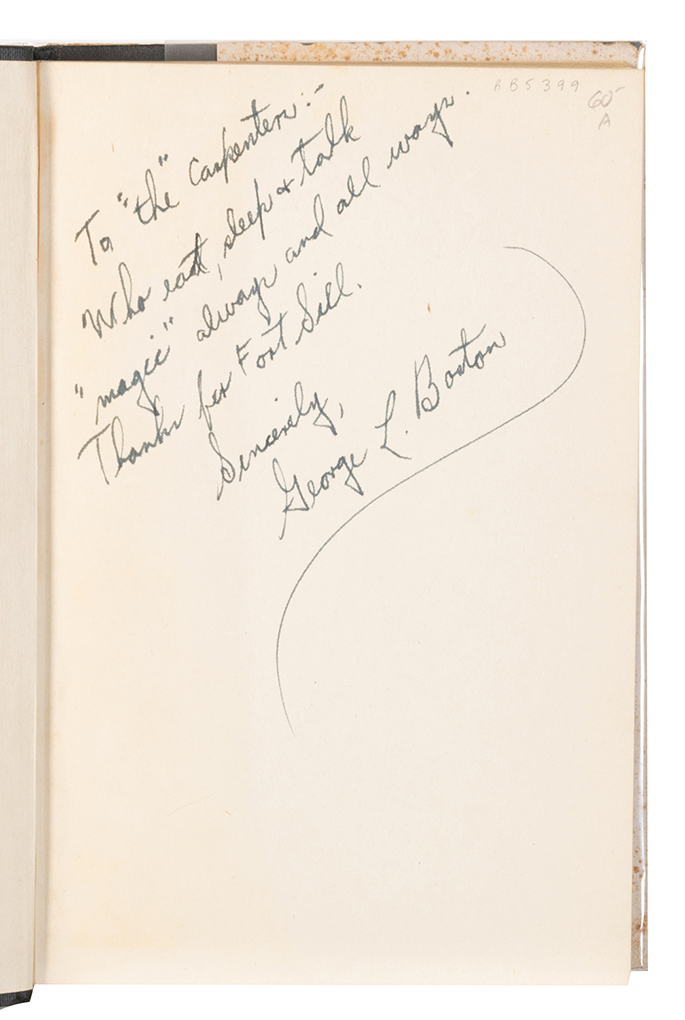 RB5399
60-
A
To "the" Carpenters:-
Who eat, sleep & talk
"magic" always and all ways.
Thanks for Fort Sill.
Sincerely,
George L. Boston